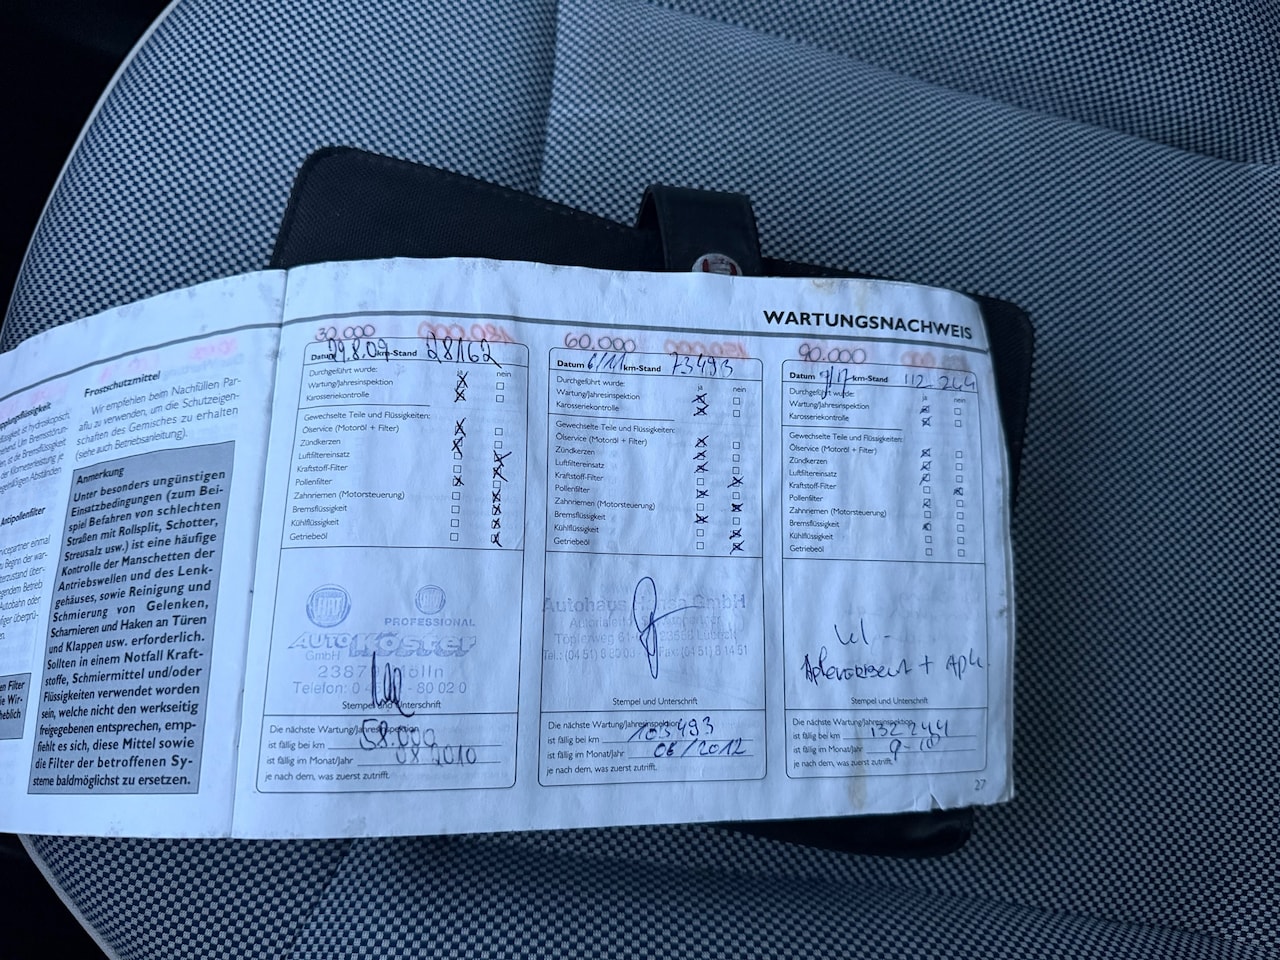 WARTUNGSNACHWEIS
Frostschutzmittel
Wir empfehlen beim Nachfüllen Par-
aflu zu verwenden, um die Schutzeigen-
schaften des Gemisches zu erhalten
(siehe auch Betriebsanleitung).
Anmerkung
Unter besonders ungünstigen
Einsatzbedingungen (zum Bei-
spiel Befahren von schlechten
Straßen mit Rollsplit, Schotter,
Streusalz usw.) ist eine häufige
Kontrolle der Manschetten der
Antriebswellen und des Lenk-
gehäuses, sowie Reinigung und
Schmierung von Gelenken,
Scharnieren und Haken an Türen
und Klappen usw. erforderlich.
Sollten in einem Notfall Kraft-
stoffe, Schmiermittel und/oder
Flüssigkeiten verwendet worden
sein, welche nicht den werkseitig
freigegebenen entsprechen, emp-
fiehlt es sich, diese Mittel sowie
die Filter der betroffenen Sy-
steme baldmöglichst zu ersetzen.
30.000
Datum 29.8.09 km-Stand 28162
Durchgeführt wurde: ja nein
Wartung/Jahresinspektion
Karosseriekontrolle
Gewechselte Teile und Flüssigkeiten:
Ölservice (Motoröl + Filter)
Zündkerzen
Luftfiltereinsatz
Kraftstoff-Filter
Pollenfilter
Zahnriemen (Motorsteuerung)
Bremsflüssigkeit
Kühlflüssigkeit
Getriebeöl
FIAT
PROFESSIONAL
AUTO Köster
GmbH
Mölln
Telefon: - 80 02 0
Stempel und Unterschrift
Die nächste Wartung/Jahresinspektion
ist fällig bei km 58.000
ist fällig im Monat/Jahr 08 2010
je nach dem, was zuerst zutrifft.
60.000
Datum 6/11 km-Stand 73493
Durchgeführt wurde: ja nein
Wartung/Jahresinspektion
Karosseriekontrolle
Gewechselte Teile und Flüssigkeiten:
Ölservice (Motoröl + Filter)
Zündkerzen
Luftfiltereinsatz
Kraftstoff-Filter
Pollenfilter
Zahnriemen (Motorsteuerung)
Bremsflüssigkeit
Kühlflüssigkeit
Getriebeöl
Autohaus Hansa GmbH
Lübeck
Stempel und Unterschrift
Die nächste Wartung/Jahresinspektion
ist fällig bei km 103493
ist fällig im Monat/Jahr 06/2012
je nach dem, was zuerst zutrifft.
90.000
Datum 9/17 km-Stand 112 244
Durchgeführt wurde: ja nein
Wartung/Jahresinspektion
Karosseriekontrolle
Gewechselte Teile und Flüssigkeiten:
Ölservice (Motoröl + Filter)
Zündkerzen
Luftfiltereinsatz
Kraftstoff-Filter
Pollenfilter
Zahnriemen (Motorsteuerung)
Bremsflüssigkeit
Kühlflüssigkeit
Getriebeöl
Stempel und Unterschrift
Die nächste Wartung/Jahresinspektion
ist fällig bei km 132244
ist fällig im Monat/Jahr
je nach dem, was zuerst zutrifft.
27